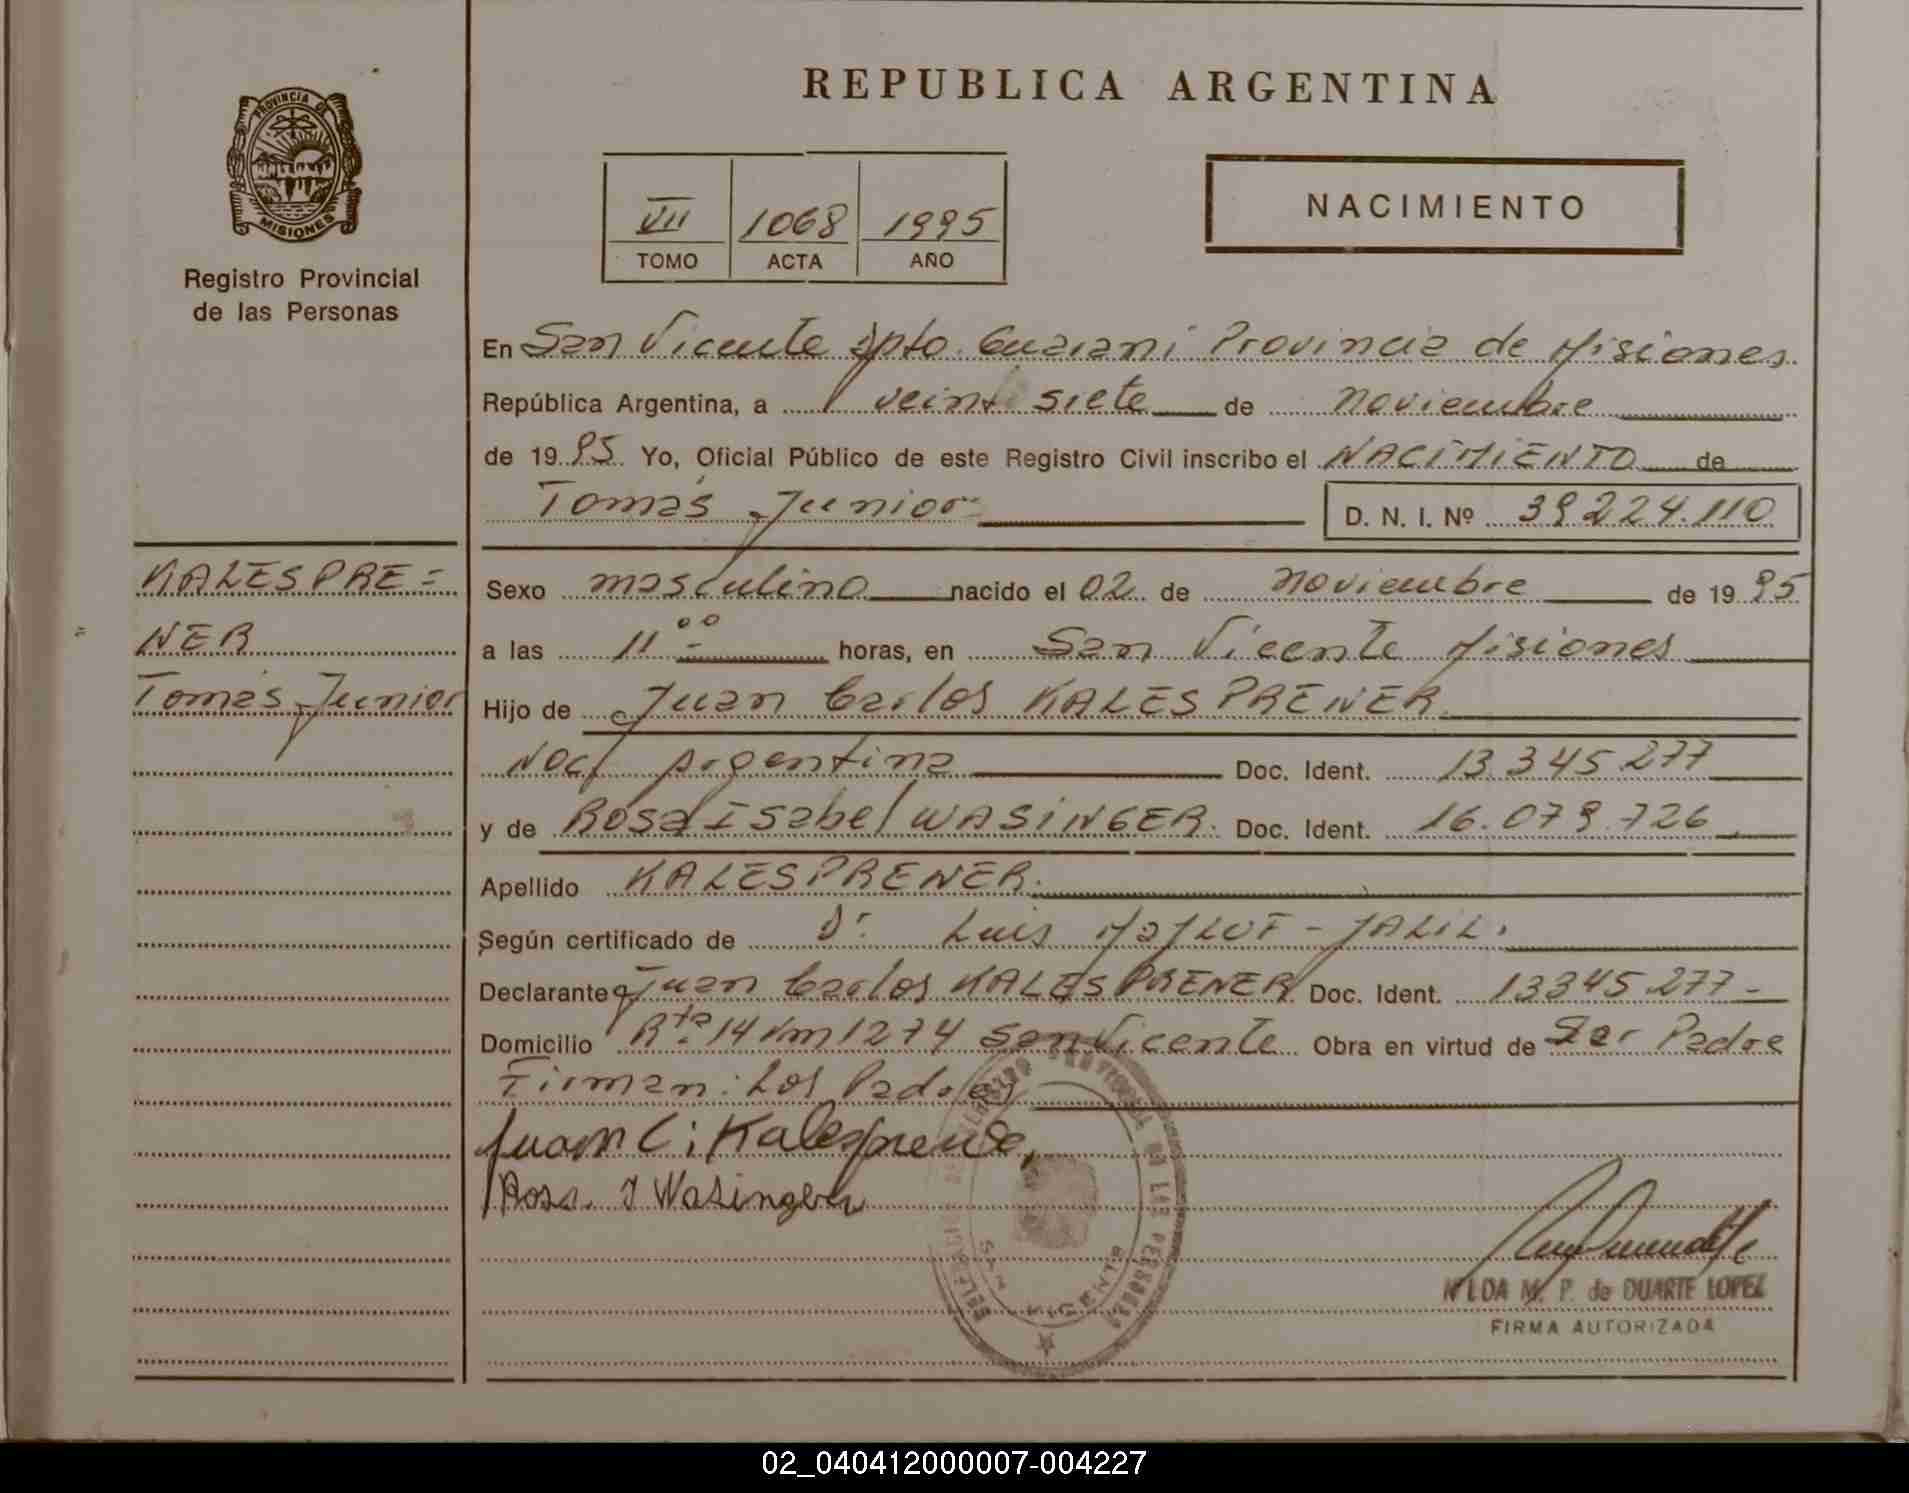 REPUBLICA ARGENTINA
PROVINCIA DE
MISIONES
Registro Provincial
de las Personas
VII 1068 1995
TOMO ACTA AÑO
NACIMIENTO
En San Vicente Dpto. Guarani Provincia de Misiones.
República Argentina, a veintisiete de noviembre
de 1995 Yo, Oficial Público de este Registro Civil inscribo el NACIMIENTO de
Tomás Junior
D. N. I. Nº 39224.110
KALESPRE=
NER
Tomás Junior
Sexo masculino nacido el 02 de noviembre de 1995
a las 11 00 horas, en San Vicente Misiones
Hijo de Juan Carlos KALESPRENER
Nac/ Argentina Doc. Ident. 13.345.277
y de Rosa Isabel WASINGER. Doc. Ident. 16.079.726
Apellido KALESPRENER.
Según certificado de Dr. Luis JALIL.
Declarante Juan Carlos KALESPRENER Doc. Ident. 13345.277-
Domicilio Rta. 14 Km 1274 San Vicente Obra en virtud de Ser Padre
Firman: Los Padres
Juan C; Kalesprener,
Rosa I Wasinger
PROVINCIAL DE LAS PERSONAS
SAN VICENTE
NILDA M. P. de DUARTE LOPEZ
FIRMA AUTORIZADA
02_040412000007-004227